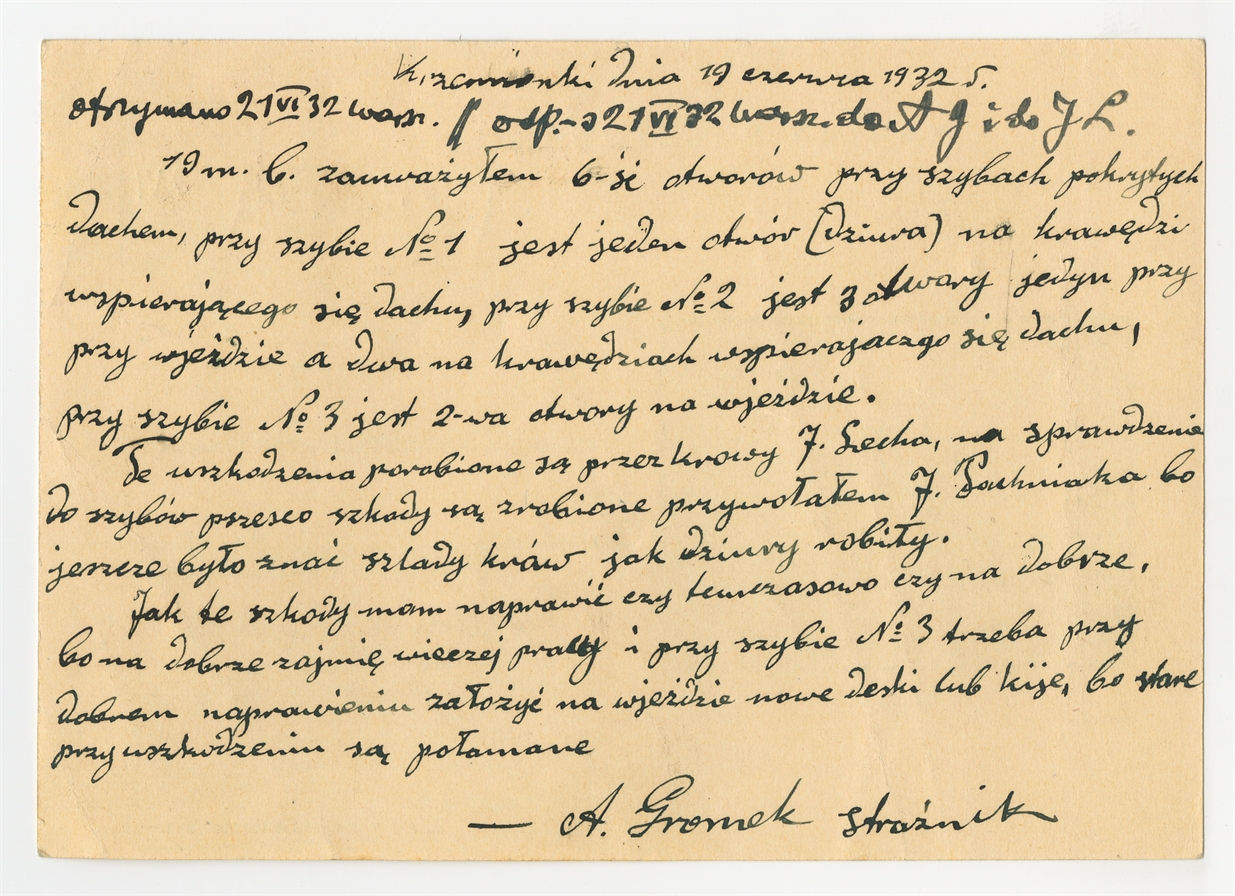 Krzemionki dnia 19 czerwca 1932 r.
otrzymano 21 VI 32 Warsz. // odp. - 21 VI 32 Warsz. do A G i do J L.
19 m. b. zauważyłem 6-śc otworów przy szybach pokrytych
dachem, przy szybie № 1 jest jeden otwór (dziura) na krawędzi
wspierającego się dachu, przy szybie № 2 jest 3 otwory jedyn przy
przy wjeździe a dwa na krawędziach wspierajaczgo się dachu,
przy szybie № 3 jest 2-wa otwory na wjeździe.
Te uszkodzenia porobione są przez krowy J. Lecha, na sprawdzenie
do szybów pszesco szkody są zrobione przywołałem J. Pachniaka bo
jeszcze było znać szlady krów jak dziury robiły.
Jak te szkody mam naprawić czy temczasowo czy na dobrze,
bo na dobrze zajmię wieczej pracy i przy szybie № 3 trzeba przy
dobrem naprawieniu założyć na wjeździe nowe deski lub kije, bo stare
przy uszkodzeniu są połamane
— A. Gromek strażnik